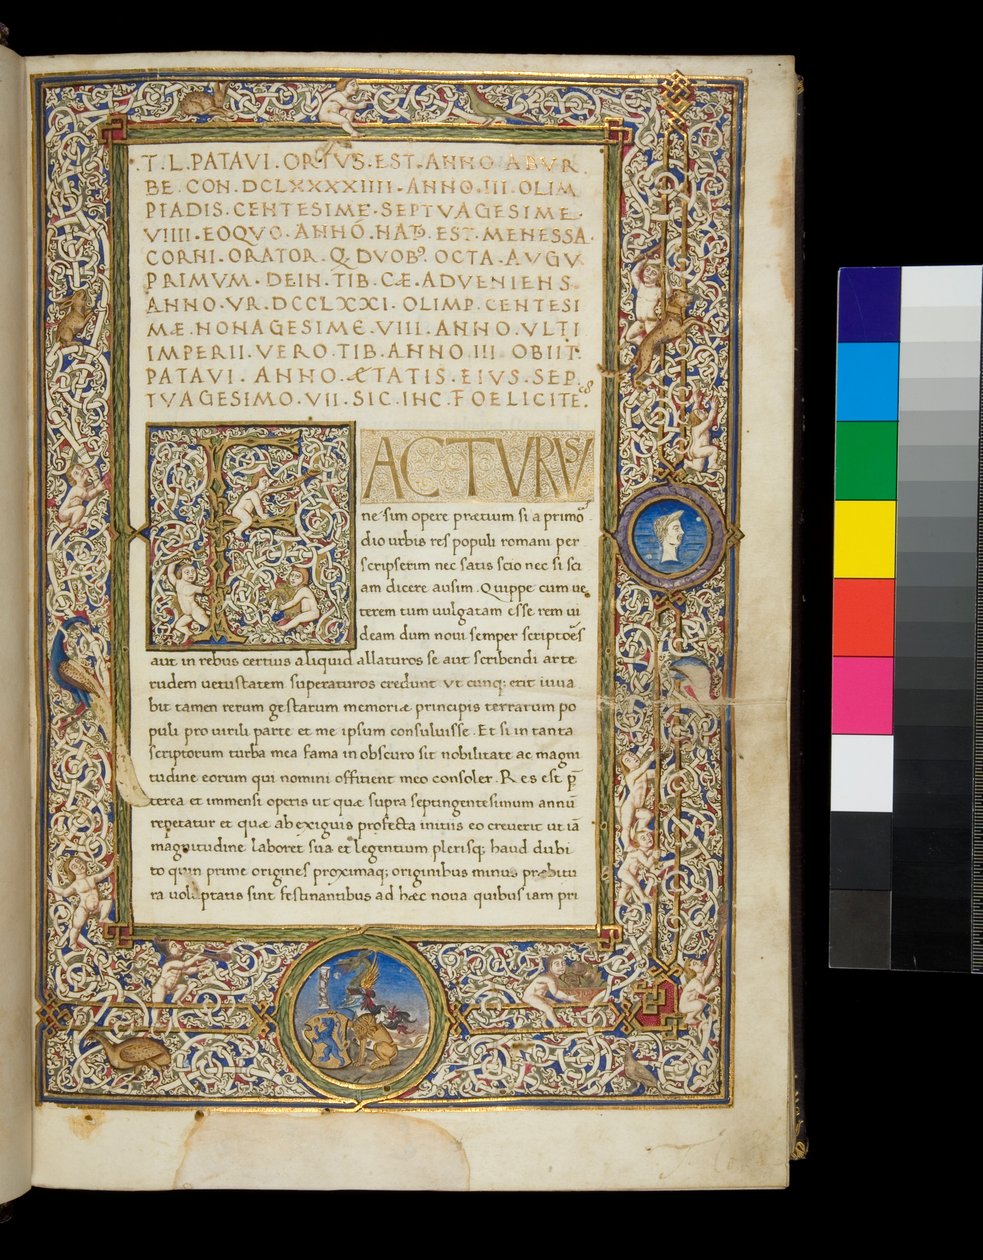 T.L.PATAVI.ORTVS.EST.ANNO.ABVR
BE.CON.DCLXXXXIIII.ANNO.III.OLIM
PIADIS.CENTESIME.SEPTVAGESIME.
VIIII.EOQVO.ANNŌ.NATꝰ.EST.MENESSA.
CORNI.ORATOR.Q.DVOBꝰ.OCTA.AVGV
PRIMVM.DEIN.TIB.CÆ.ADVENIENS
ANNO.VR.DCCLXXI.OLIMP.CENTESI
MÆ.NONAGESIME.VIII.ANNO.VLTI
IMPERII.VERO.TIB.ANNO.III.OBIIT.
PATAVI.ANNO.ÆTATIS.EIVS.SEP
TVAGESIMO.VII.SIC.INC.FOELICITE.
F ACTVRVS
ne sim opere prætium si a primo᷒
dio urbis res populi romani per
scripserim nec satis scio nec si sci
am dicere ausim. Quippe cum ue
terem tum uulgatam esse rem ui
deam dum noui semper scriptoēs
aut in rebus certius aliquid allaturos se aut scribendi arte
rudem uetustatem superaturos credunt vt cunq; erit iuua
bit tamen rerum gestarum memoriæ principis terrarum po
puli pro uirili parte et me ipsum consuluisse. Et si in tanta
scriptorum turba mea fama in obscuro sit nobilitate ac magni
tudine eorum qui nomini offitient meo consoler. Res est p̄
terea et immensi operis ut quæ supra septingentesimum annū
repetatur et quæ ab exiguis profecta initiis eo creuerit ut iā
magnitudine laboret sua et legentium plerisq; haud dubi
to quin prime origines proximaq; originibus minus præbitu
ra uoluptatis sint festinantibus ad hæc noua quibus iam pri